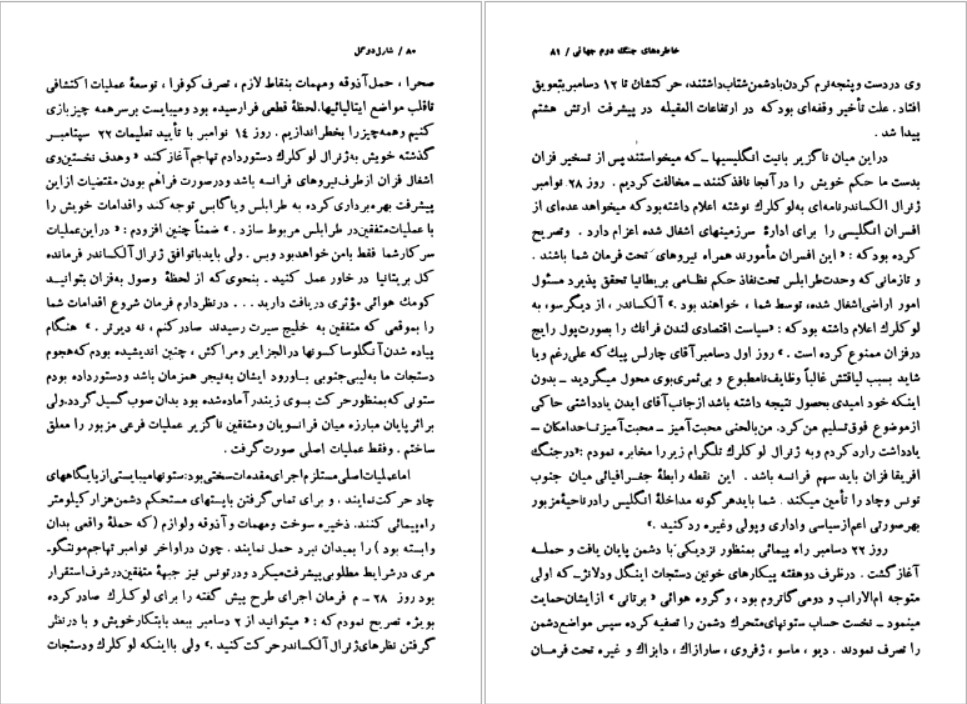 ۸۰ / شارل دوگل
صحرا ، حمل آذوقه ومهمات بنقاط لازم ، تصرف کوفرا ، توسعهٔ عملیات اکتشافی
تاقلب مواضع ایتالیائیها. لحظهٔ قطعی فرارسیده بود ومیبایست برسرهمه چیزبازی
کنیم وهمه‌چیز را بخطر اندازیم . روز ۱۴ نوامبر با تأیید تعلیمات ۲۲ سپتامبر
گذشته خویش به‌ژنرال لوکلرک دستوردادم تهاجم آغازکند « وهدف نخستین‌وی
اشغال فزان ازطرف‌نیروهای فرانسه باشد ودرصورت فراهم بودن مقتضیات ازاین
پیشرفت بهره‌برداری کرده به طرابلس ویاگابس توجه کند واقدامات خویش را
با عملیات‌متفقین‌در طرابلس مربوط سازد . » ضمناً چنین افزودم : « دراین‌عملیات
سرکارشما فقط بامن خواهدبود وبس . ولی بایدباتوافق ژنرال آلکساندر فرمانده
کل بریتانیا در خاور عمل کنید . بنحوی که از لحظهٔ وصول به‌فزان بتوانید
کومك هوائی مؤثری دریافت دارید . . . درنظردارم فرمان شروع اقدامات شما
را بموقعی که متفقین به خلیج سیرت رسیدند صادرکنم ، نه دیرتر . » هنگام
پیاده شدن‌آنگلوساکسونها درالجزایر ومراکش ، چنین اندیشیده بودم که‌هجوم
دستجات ما به‌لیبی‌جنوبی باورود ایشان به‌نیجر همزمان باشد ودستورداده بودم
ستونی که‌بمنظورحرکت بسوی زیندرآماده‌شده بود بدان صوب گسیل گردد.ولی
براثرپایان مبارزه میان فرانسویان ومتفقین ناگزیر عملیات فرعی مزبور را معلق
ساختم . وفقط عملیات اصلی صورت‌گرفت .
اماعملیات‌اصلی‌مستلزم‌اجرای‌مقدمات‌سختی‌بود:ستونهامیبایستی‌از‌پایگاههای
چاد حرکت‌نمایند . و برای تماس‌گرفتن باپستهای مستحکم دشمن‌هزارکیلومتر
راه‌پیمائی کنند. ذخیره سوخت ومهمات وآذوقه ولوازم (که حملهٔ واقعی بدان
وابسته بود ) را بمیدان نبرد حمل نمایند . چون دراواخر نوامبر تهاجم‌مونتگو۔
مری درشرایط مطلوبی‌پیشرفت‌میکرد ودرتونس نیز جبههٔ متفقین‌درشرف‌استقرار
بود روز ۲۸ ـ م فرمان اجرای طرح پیش گفته را برای لوکلرک صادرکرده
بویژه تصریح نمودم که : « میتوانید از ۲ دسامبر ببعد بابتکارخویش و با درنظر
گرفتن نظرهای‌ژنرال آلکساندرحرکت‌کنید . » ولی بااینکه لوکلرک ودستجات
خاطره‌های جنگ دوم جهانی / ۸۱
وی دردست وپنجه‌نرم کردن‌بادشمن‌شتاب‌داشتند، حرکتشان تا ۱۲ دسامبربتعویق
افتاد . علت تأخیر وقفه‌ای بودکه در ارتفاعات العقیله در پیشرفت ارتش هشتم
پیدا شد .
دراین میان ناگزیر بانیت انگلیسیها ــ که میخواستند پس از تسخیر فزان
بدست ما حکم خویش را درآنجا نافذکنند ــ مخالفت‌کردیم . روز ۲۸ نوامبر
ژنرال الکساندرنامه‌ای به‌لوکلرک نوشته اعلام داشته‌بودکه میخواهد عده‌ای از
افسران انگلیسی را برای ادارهٔ سرزمینهای اشغال شده اعزام دارد . وتصریح
کرده بودکه : « این افسران مأمورند همراه نیروهای تحت فرمان شما باشند .
و تازمانی‌که وحدت‌طرابلس تحت‌نفاذ حکم نظامی بریطانیا تحقق پذیرد مسئول
امور اراضی‌اشغال شده، توسط شما ، خواهند بود .» آلکساندر ، از دیگرسو، به
لوکلرک اعلام داشته بودکه : «سیاست اقتصادی لندن فرانك را بصورت‌پول رایج
درفزان ممنوع کرده است . » روز اول دسامبرآقای چارلس پیك‌که علی‌رغم ویا
شاید بسبب لیاقتش غالباً وظایف‌نامطبوع و بی‌ثمری‌بوی محول میگردید ــ بدون
اینکه خود امیدی بحصول نتیجه داشته باشد ازجانب‌آقای ایدن یادداشتی حاکی
ازموضوع فوق‌تسلیم من‌کرد. من‌بالحنی محبت‌آمیز ــ محبت‌آمیز تاحدامکان ــ
یادداشت راردکردم وبه ژنرال لوکلرک تلگرام زیررا مخابره نمودم :«درجنگ
افریقا فزان باید سهم فرانسه باشد . این نقطه رابطهٔ جغرافیائی میان جنوب
تونس وچاد را تأمین میکند . شما بایدهرگونه مداخلهٔ انگلیس رادرناحیهٔ‌مزبور
بهرصورتی اعم‌ازسیاسی واداری وپولی وغیره ردکنید .»
روز ۲۲ دسامبر راه پیمائی بمنظور نزدیکی با دشمن پایان یافت و حمله
آغازگشت . درظرف دوهفته پیکارهای خونین دستجات اینگل ودلانژــ که اولی
متوجه ام‌الارانب و دومی‌گاتروم بود ، وگروه هوائی « برتانی » ازایشان‌حمایت
مینمود ــ نخست حساب ستونهای‌متحرك دشمن را تصفیه‌کرده سپس مواضع‌دشمن
را تصرف نمودند . دیو ، ماسو ، ژفروی ، سارازاك ، دابزاك و غیره تحت فرمان